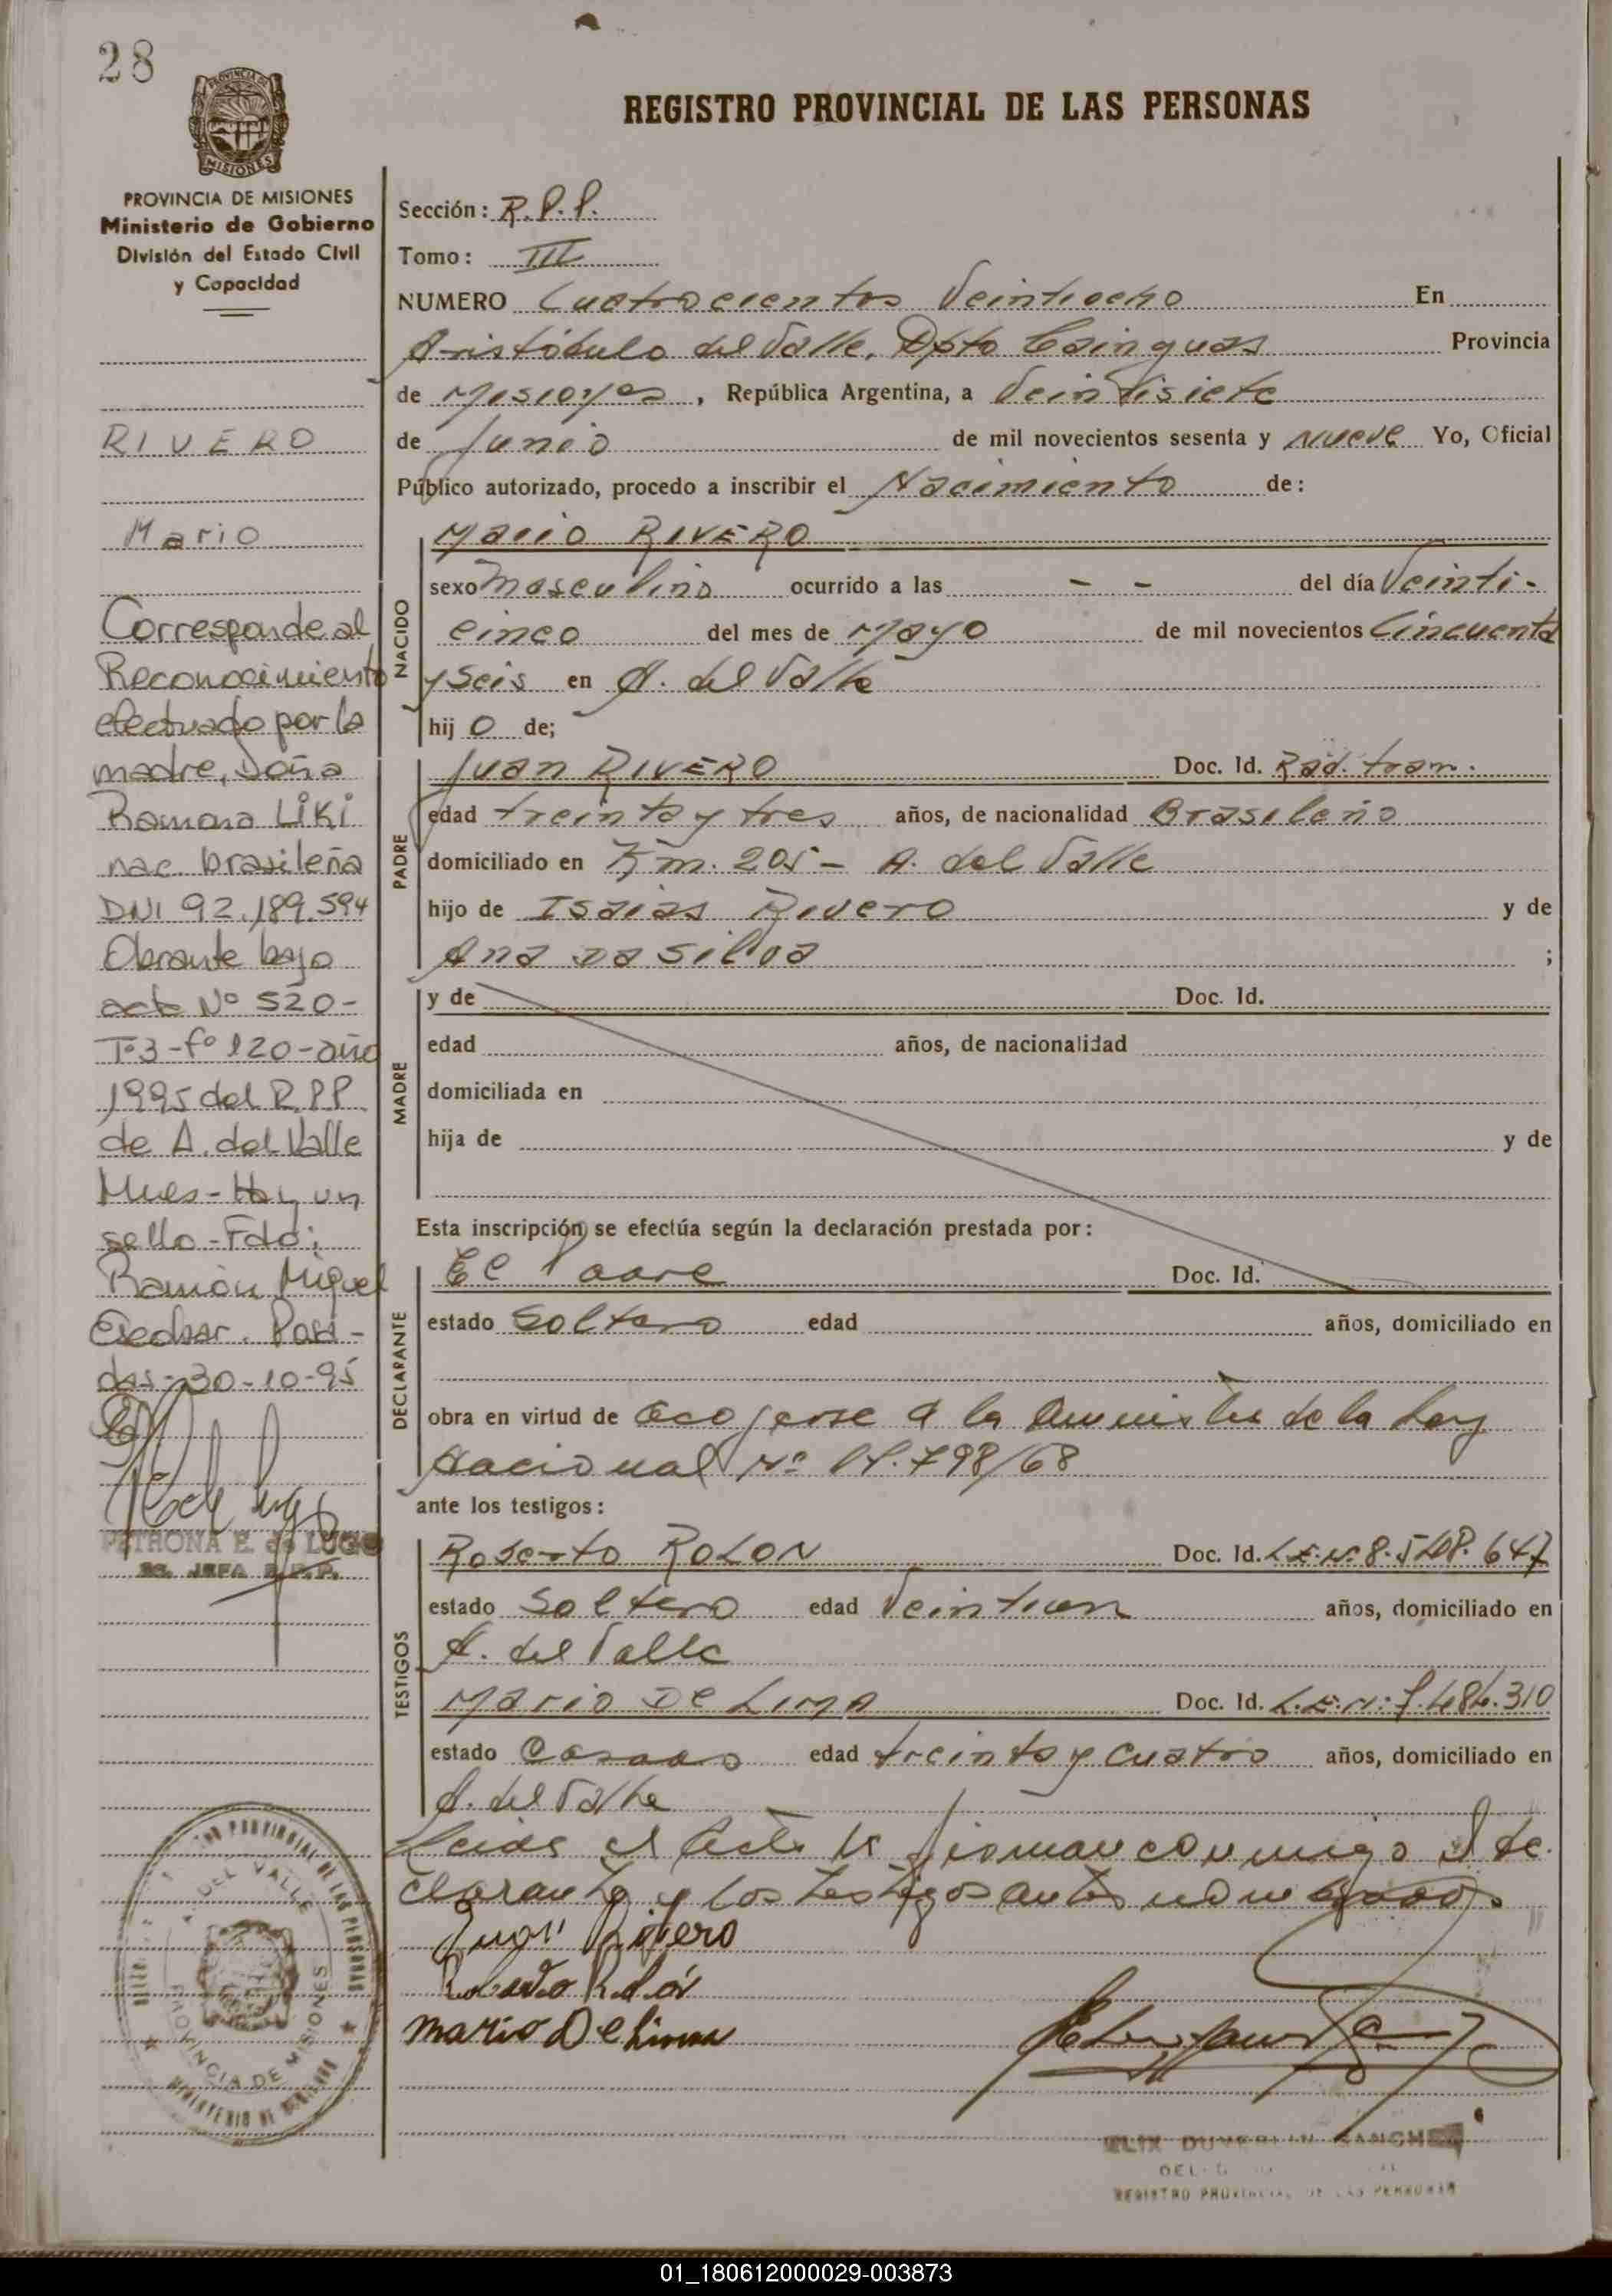 28
PROVINCIA DE MISIONES
PROVINCIA DE MISIONES
Ministerio de Gobierno
División del Estado Civil
y Capacidad
RIVERO
Mario
Corresponde al
Reconocimiento
efectuado por la
madre, Doña
Ramona LiKi
nac. brasileña
DNI 92.189.594
Obrante bajo
acta Nº 520-
Tº3-fº 120-año
1995 del R.P.P.
de A. del Valle
Mnes-Hay un
sello-Fdo:
Ramón Miguel
Posa-
das-30-10-95
PETRONA E. de LUGO
JEFA R.P.P.
REGISTRO PROVINCIAL DE LAS PERSONAS
Sección: R.P.P.
Tomo: III
NUMERO Cuatrocientos Veintiocho En
Aristóbulo del Valle, Dpto Cainguas Provincia
de Misiones, República Argentina, a Veintisiete
de Junio de mil novecientos sesenta y nueve Yo, Oficial
Público autorizado, procedo a inscribir el Nacimiento de:
NACIDO
Mario RIVERO
sexo Masculino ocurrido a las - - del día Veinti-
cinco del mes de Mayo de mil novecientos Cincuenta
y Seis en A. del Valle
hij o de;
PADRE
Juan RIVERO Doc. Id. Rad. tram.
edad treinta y tres años, de nacionalidad Brasileño
domiciliado en Km. 205- A. del Valle
hijo de Isaias Rivero y de
Ana da Silva ;
MADRE
y de Doc. Id.
edad años, de nacionalidad
domiciliada en
hija de y de
Esta inscripción se efectúa según la declaración prestada por:
DECLARANTE
El Padre Doc. Id.
estado Soltero edad años, domiciliado en
obra en virtud de acojerse a la Amnistia de la Ley
Nacional Nº 17.798/68
ante los testigos:
TESTIGOS
Roberto ROLON Doc. Id. L.E.Nº 8.548.647
estado Soltero edad Veintiun años, domiciliado en
A. del Valle
Mario De LIMA Doc. Id. L.E.Nº: 7.484.310
estado Casado edad treinta y cuatro años, domiciliado en
A. del Valle
Leida el Acta la firman conmigo el de-
clarante y los testigos antes nombrados.
Juan Rivero
Rolón
Mario De Lima
DUVERLIN SANCHEZ
REGISTRO PROVINCIAL DE LAS PERSONAS
DEL VALLE
PROVINCIA DE MISIONES
01_180612000029-003873